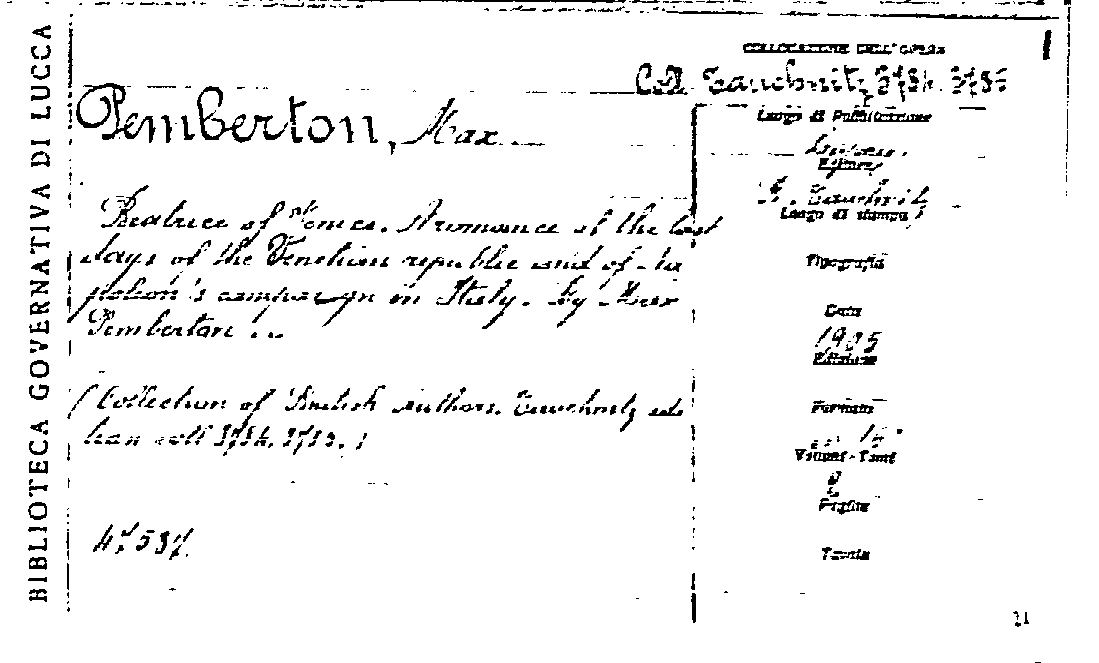 BIBLIOTECA GOVERNATIVA DI LUCCA
COLLOCAZIONE DELL'OPERA
Coll. Tauchnitz 3784. 3785
Pemberton, Max
Luogo di Pubblicazione
Editore
B. Tauchnitz
Luogo di stampa
Beatrice of Venice. A romance of the last
days of the Venetian republic and of Na
poleon's campaign in Italy. By Max
Pemberton ...
Tipografia
Data
1905
Edizione
(Collection of British authors. Tauchnitz edi
tion voll 3784. 3785.)
Formato
16°
Volumi - Tomi
2
Pagine
Tavole
47537